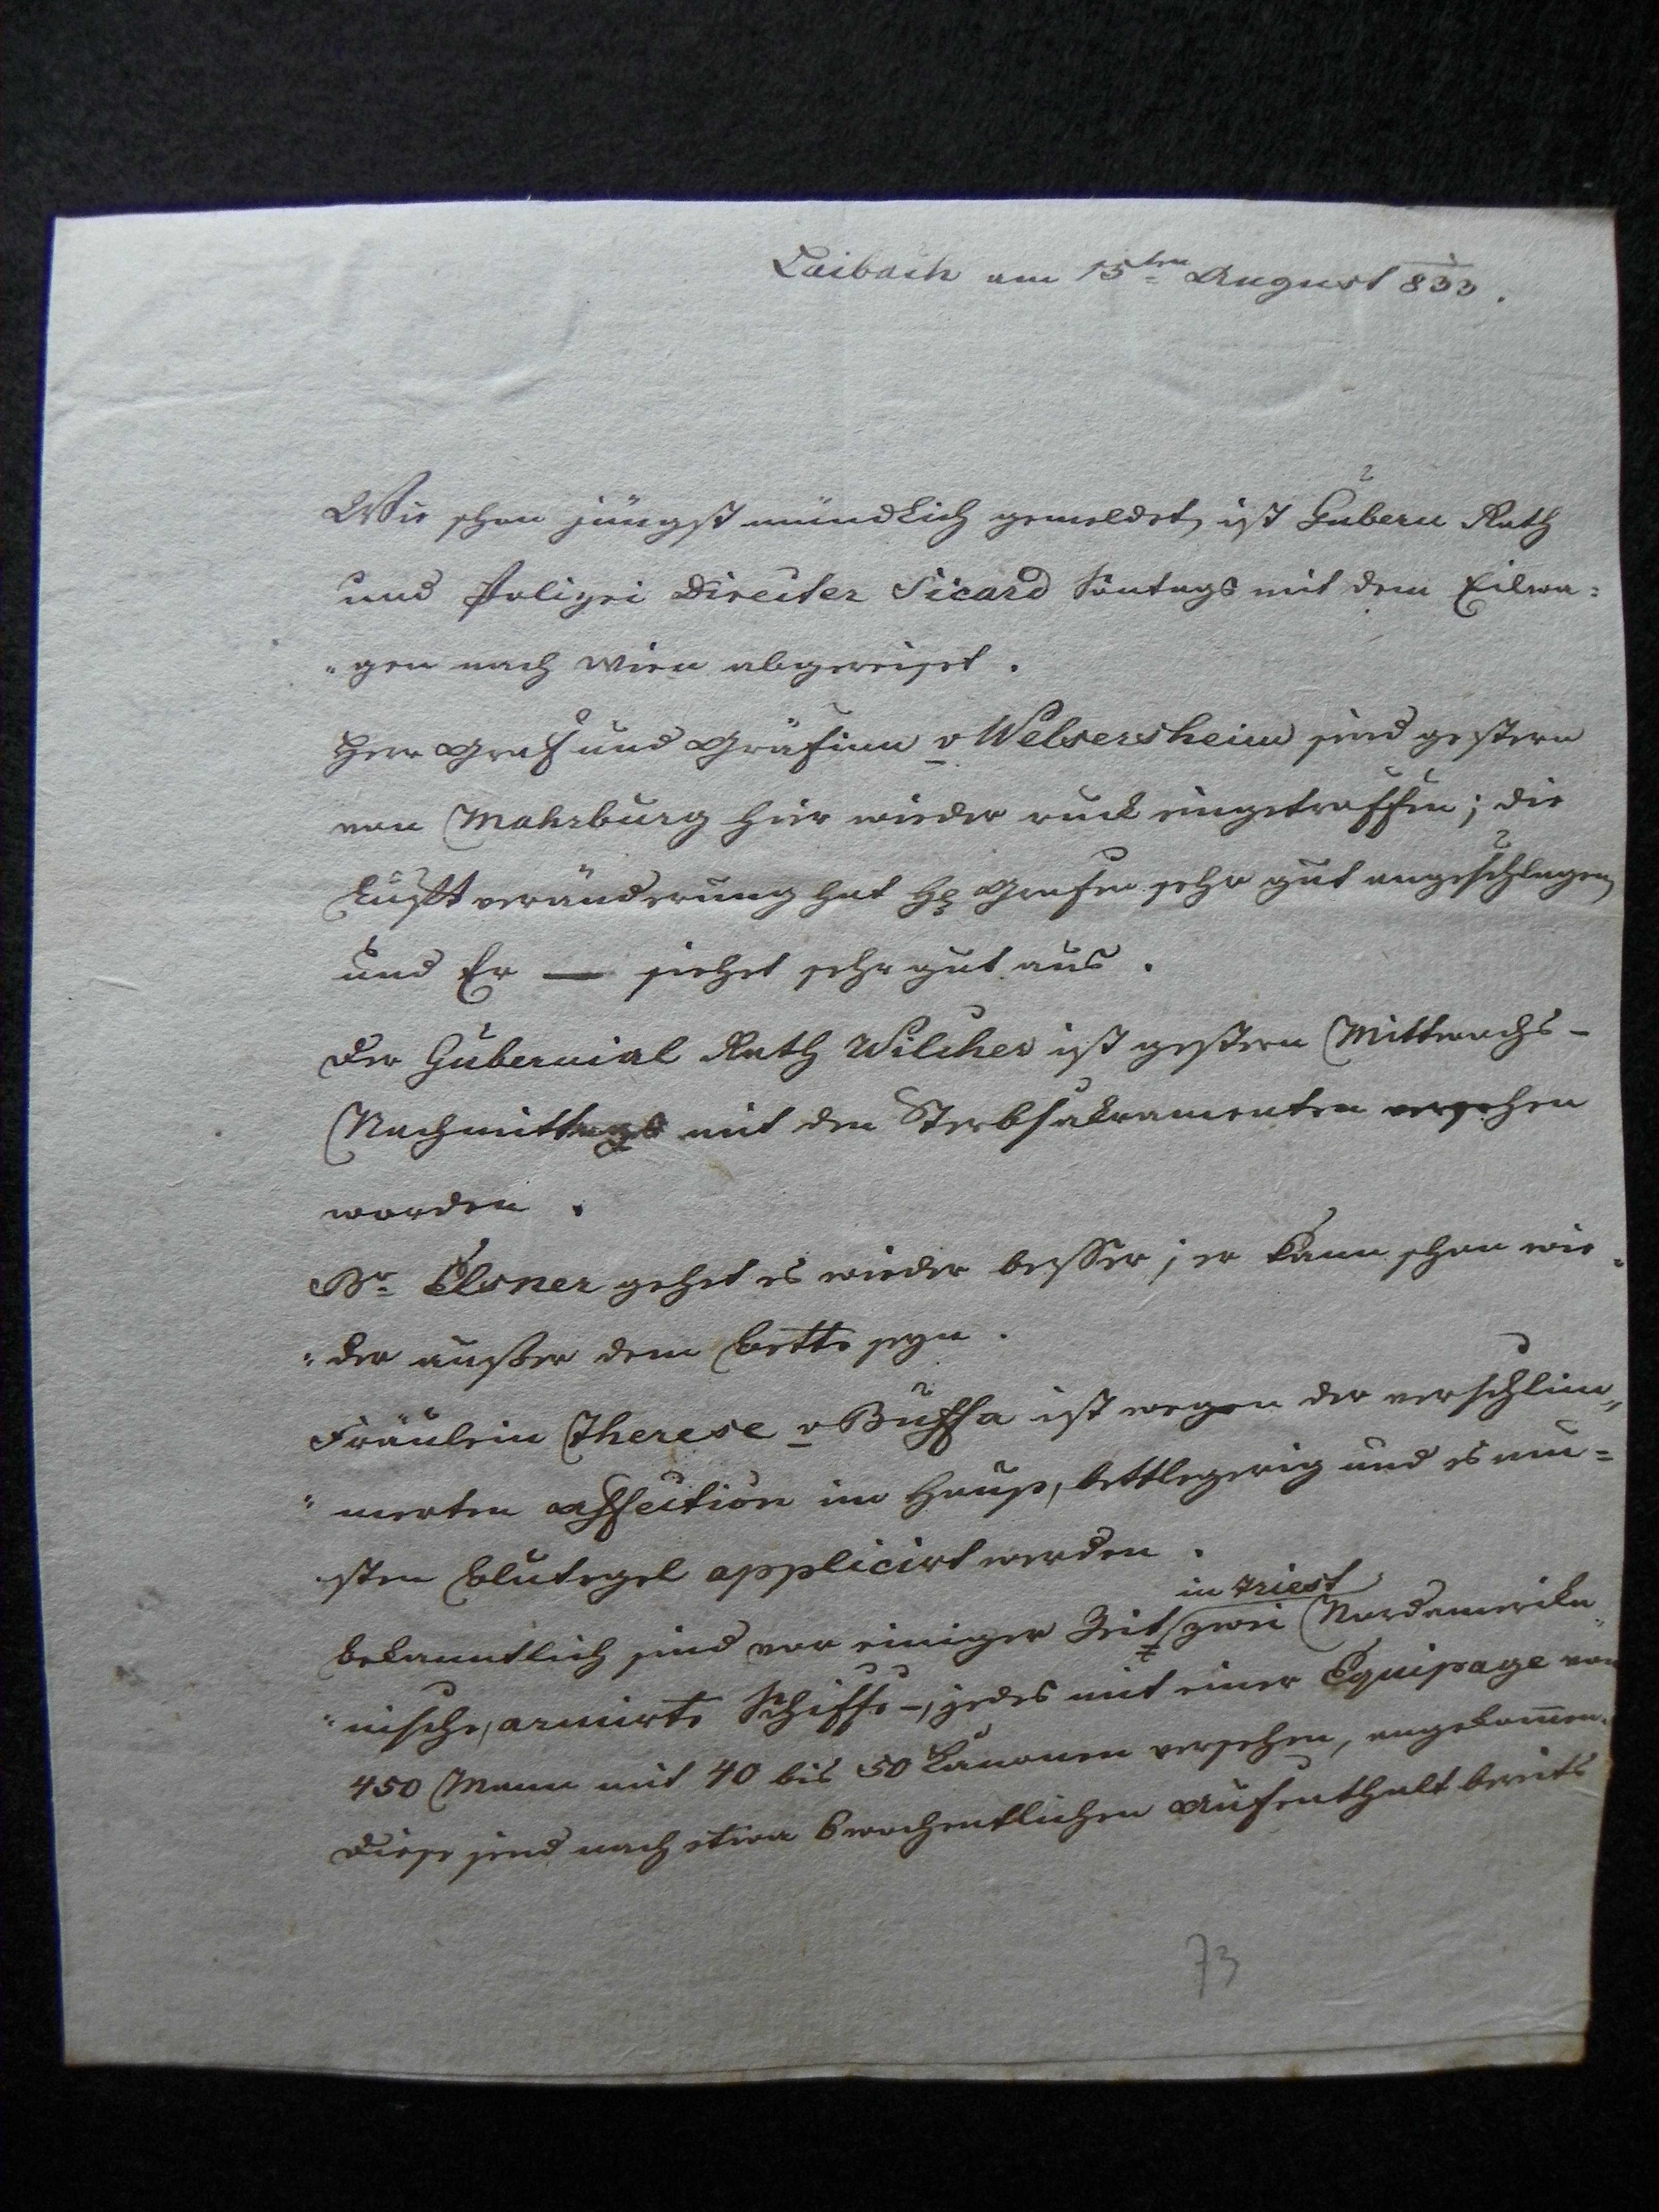 Laibach am 15ten August 833.
Wie schon jüngst mündlich gemeldet, ist Gubern Rath
und Polizei Director Sicard Sontags mit dem Eilwa=
"gen nach Wien abgereiset.
Herr Graf und Gräfinn v Welsersheim sind gestern
von Mahrburg hier wieder ruck eingetroffen; die
Luftveränderung hat H Grafen sehr gut angeschlagen,
und Er — siehet sehr gut aus.
Der Gubernial Rath Wilcher ist gestern Mittwochs-
Nachmittags mit den Sterbsakramenten versehen
worden.
Br Elsner gehet es wieder besser; er kann schon wie=
"der außer dem Bette seyn.
Fräulein Therese v Buffa ist wegen der verschlim"
"merten Affection im Hause, bettlegerig und es mu=
sten Blutegel applicirt werden.
in Triest
Bekanntlich sind vor einiger Zeit zwei Nordamerika
"nische, armirte Schiffe -, jedes mit einer Equipage von
450 Mann mit 40 bis 50 Kanonen versehen, angekomen.
Diese sind nach etwa 6 wochentlichen Aufenthalt bereits
73